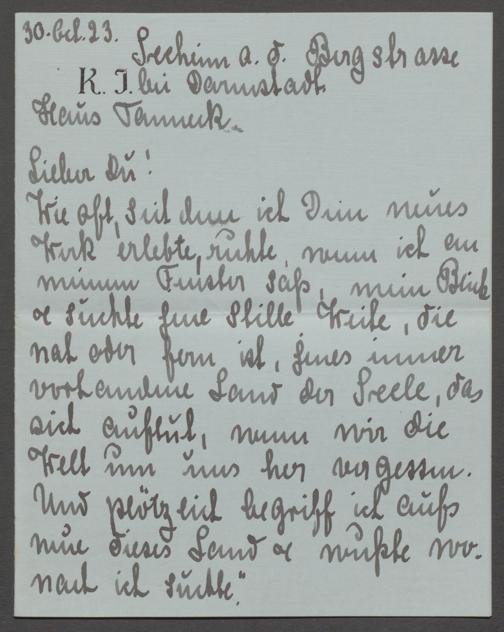 30. Oct. 23.
Seeheim a. d. Bergstrasse
K. J. bei Darmstadt
Haus Tanneck.
Lieber Du!
Wie oft, seit dem ich Dein neues
Werk erlebte, ruhte, wenn ich an
meinem Fenster saß, mein Blick
& suchte jene stille Weite, die
nah oder fern ist, jenes immer
vorhandene Land der Seele, das
sich auftut, wenn wir die
Welt um uns her vergessen.
Und plötzlich begriff ich aufs
neue dieses Land & wußte wo-
nach ich suchte."